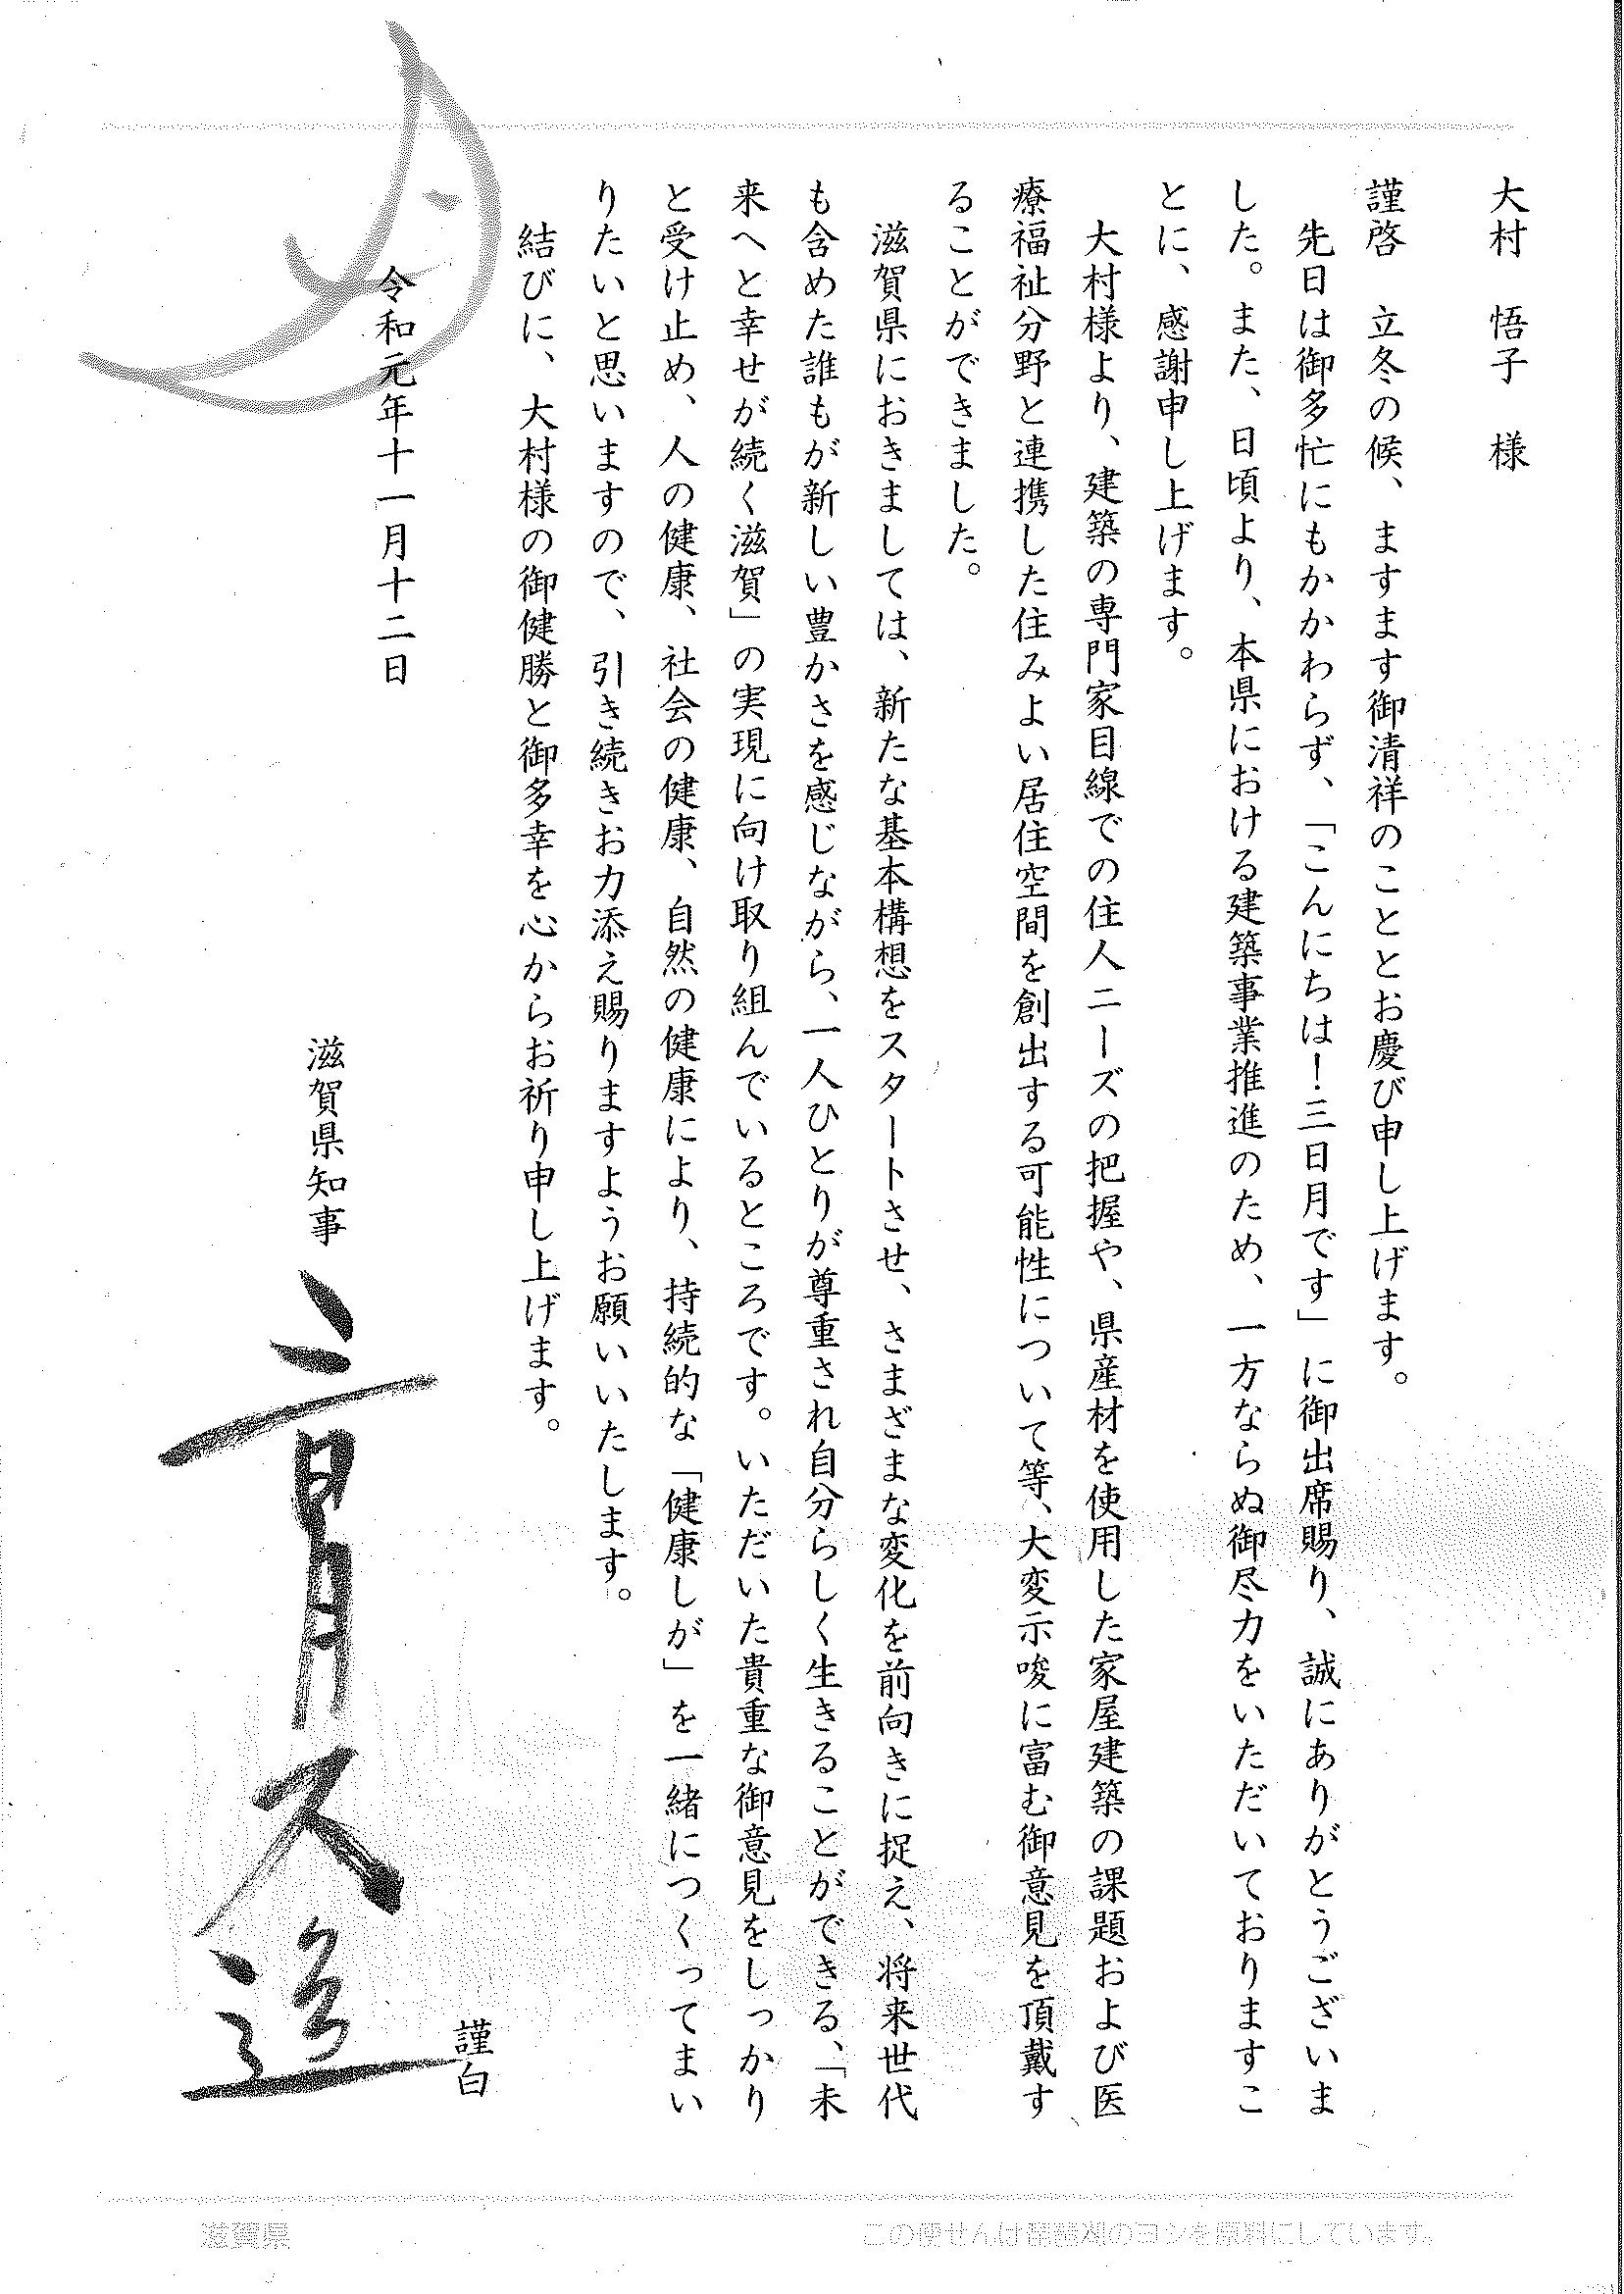 大村　悟子　様
謹啓　立冬の候、ますます御清祥のこととお慶び申し上げます。
先日は御多忙にもかかわらず、「こんにちは！三日月です」に御出席賜り、誠にありがとうございま
した。また、日頃より、本県における建築事業推進のため、一方ならぬ御尽力をいただいておりますこ
とに、感謝申し上げます。
大村様より、建築の専門家目線での住人ニーズの把握や、県産材を使用した家屋建築の課題および医
療福祉分野と連携した住みよい居住空間を創出する可能性について等、大変示唆に富む御意見を頂戴す
ることができました。
滋賀県におきましては、新たな基本構想をスタートさせ、さまざまな変化を前向きに捉え、将来世代
も含めた誰もが新しい豊かさを感じながら、一人ひとりが尊重され自分らしく生きることができる、「未
来へと幸せが続く滋賀」の実現に向け取り組んでいるところです。いただいた貴重な御意見をしっかり
と受け止め、人の健康、社会の健康、自然の健康により、持続的な「健康しが」を一緒につくってまい
りたいと思いますので、引き続きお力添え賜りますようお願いいたします。
結びに、大村様の御健勝と御多幸を心からお祈り申し上げます。
謹白
令和元年十一月十二日
滋賀県知事　三日月大造
滋賀県
この便せんは琵琶湖のヨシを原料にしています。